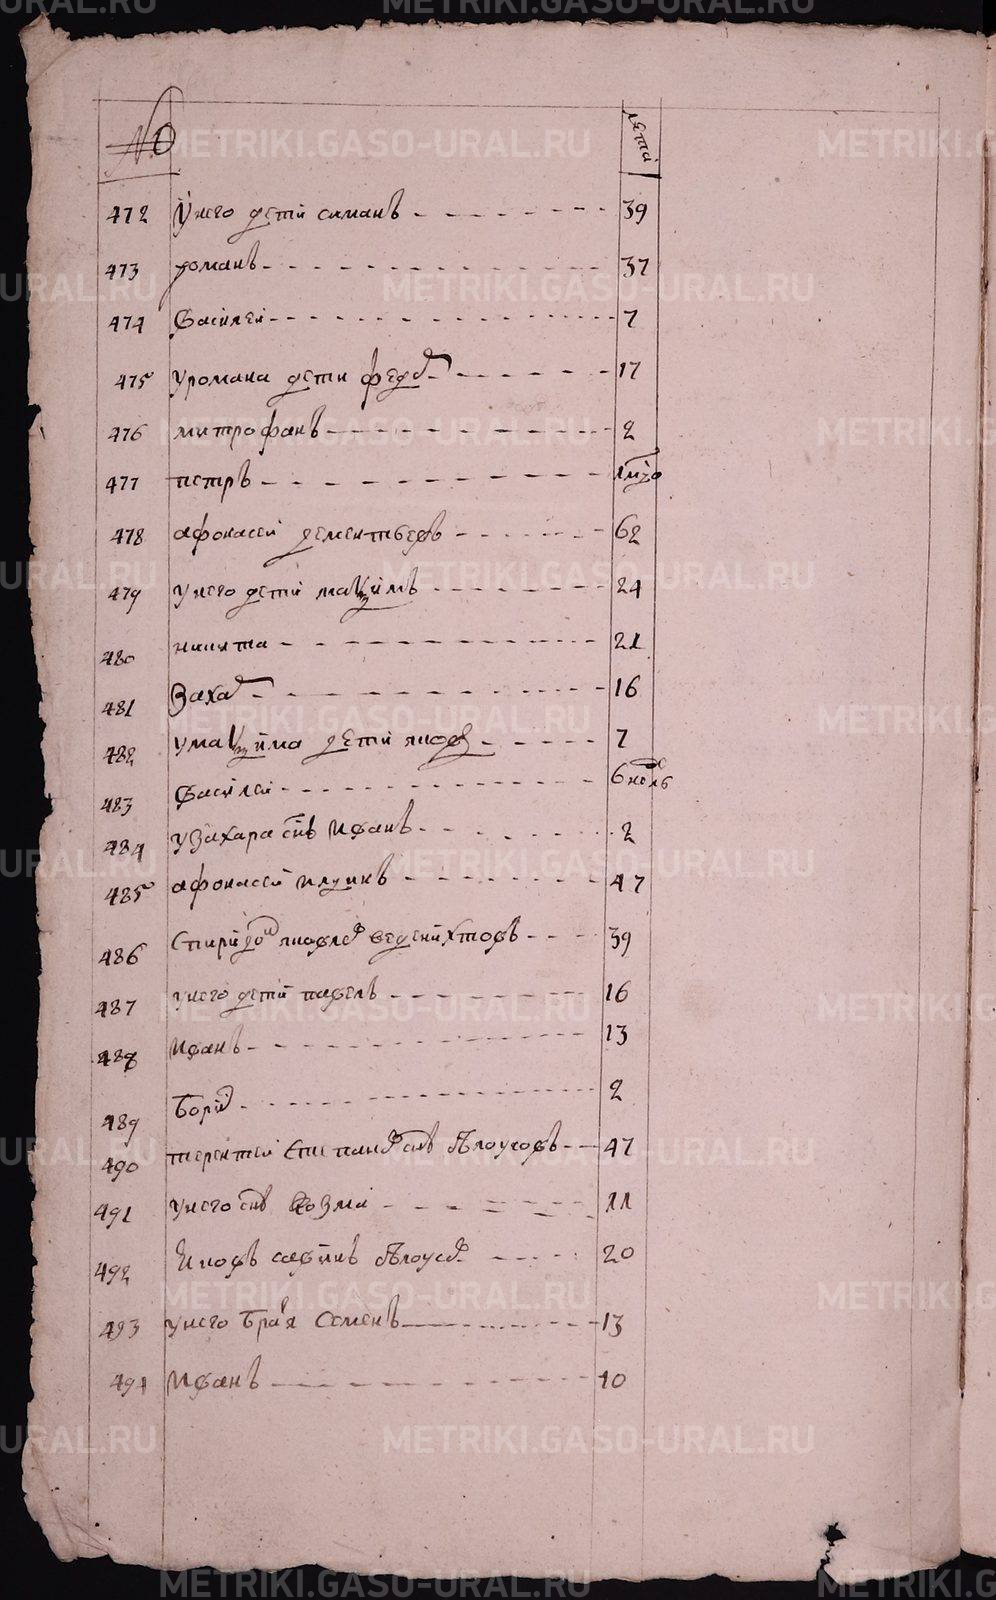 № лета
472 У него дети симанъ 39
473 романъ 37
474 василеи 7
475 у романа дети федо 17
476 митрофанъ 2
477 петръ
478 афонасеи дементьевъ 62
479 у него дети маѯимъ 24
480 никита 21
481 Заха 16
482 у маѯима дети яковъ 7
483 василеи 6 недль
484 у захара снъ иванъ 2
485 афонасеи илинъ 47
486 Спиридо яковле веденихтовъ 39
487 у него дети павелъ 16
488 иванъ 13
489 Бори 2
490 терентеи Степано снъ бѣлоусовъ 47
491 у него снъ козма 11
492 Яковъ савинъ бѣлоусо 20
493 у него братя Семенъ 13
494 иванъ 10
METRIKI.GASO-URAL.RU